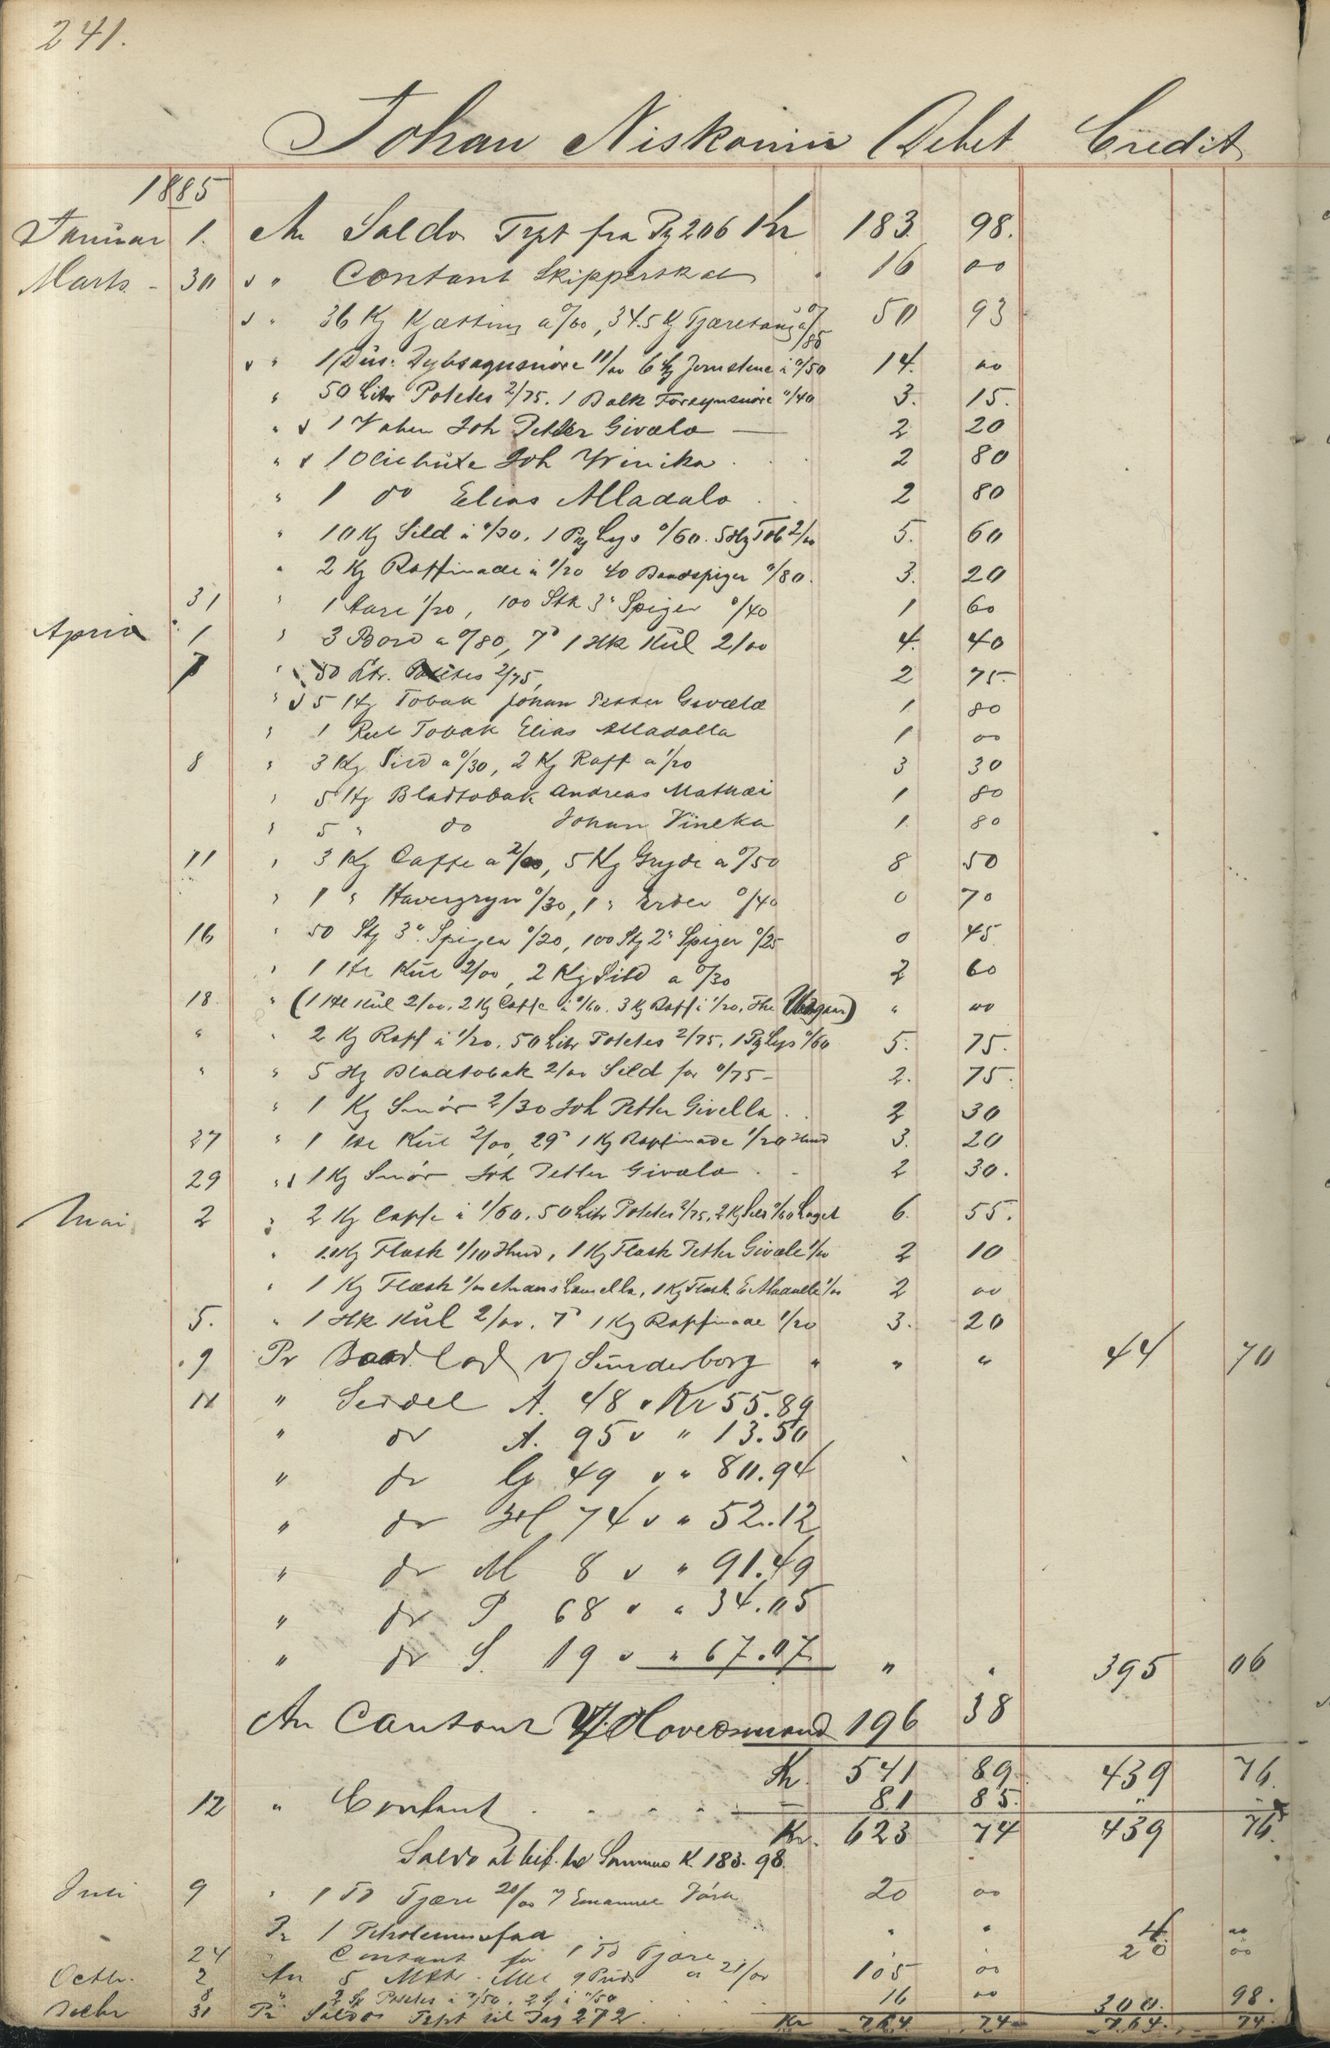 241.
Johan Niskanin Debet Credit
1885
Januar 1. An Saldo Trpt fra Pg 206 Kr 183 98.
Marts - 30 " Contant Skipperskat 16 00
" 36 Kg Kjætting a 0/60, 34.5 Kg Tjæretoug a 0/85 50 93
" 1 Dus: Dybsagnsnöre 11/00 6 Kg Jernstene a 0/50 14. 00
" 50 Litr Potetes 2/75. 1 Balk Forsynsnöre 0/40 3. 15.
" 1 Joh Petter Givæla 2 20
" 1 Oliebuxe Joh Winika 2 80
" 1 do Elias Alladala 2 80
" 10 Kg Sild a 0/30. 1 Pg Lys 0/60. 5 Hg Tob 2/00 5. 60
" 2 Kg Raffinade a 1/20 40 Baadspiger 0/80. 3. 20
31 " 1 Aare 1/20, 100 Stk 3" Spiger 0/40 1 60
April 1 " 3 Bord a 0/80, 7d 1 Hk Kul 2/00 4. 40
7 " 50 Ltr. Potetes 2/75, 2 75
" 5 Hg Tobak Johan Petter Givæla 1 80
" 1 Rul Tobak Elias Alladalla 1 00
8 " 3 Kg Sild a 0/30, 2 Kg Raff a 1/20 3 30
" 5 Hg Bladtobak Andreas Mathæi 1 80
" 5 " do Johan Vineka 1 80
11 " 3 Kg Caffe a 2/00, 5 Kg Gryde a 0/50 8 50
" 1 " Havregryn 0/30, 1 " Erder 0/40 0 70
16 " 50 Stg 3" Spiger 0/20, 100 Stg 2" Spiger 0/25 0 45
" 1 Hl Kul 2/00, 2 Kg Sild a 0/30 2 60
18 " (1 Hl Kul 2/00. 2 Kg Caffe a 1/60. 3 Kg Raff a 1/20. ) " 00
" " 2 Kg Raff a 1/20. 50 Litr Potetes 2/75. 1 Pg Lys 0/60 5. 75.
" " 5 Hg Bladtobak 2/00 Sild for 0/75 - 2. 75.
" 1 Kg Smör 2/30 Joh Petter Givella 2 30
27 " 1 Hl Kul 2/00, 29d 1 Kg Raffinade 1/20 3. 20
29 " 1 Kg Smör Joh Petter Givæla 2 30.
Mai 2 " 2 Kg Caffe a 1/60. 50 Litr Potetes 2/75. 2 Kg 0/60 6. 55.
" Kg Flæsk 1/10, 1 Kg Flæsk Petter Givæle 1/00 2 10
" 1 Kg Flæsk 1/00, 1 Kg Flæsk E Aladalla 1/00 2 00
5. " 1 Hk Kul 2/00. 7d 1 Kg Raffinade 1/20 3. 20
9 Pr v/ Sunderborg " " " 44 70
11 " Seddel A. 48 v Kr 55.89
" do A. 95 v " 13.50
" do G 49 v " 80.94
" do 74 v " 52.12
" do M 8 v " 91.49
" do P 68 v " 34.05
" do S. 19 v " 67.07 " " 395 06
An Cantant v/ Hovedmand 196 38
Kr. 541 89 439 76.
12 " Contant 81 85. " "
Kr. 623 74 439 76.
Saldo Summa K. 183. 98.
Juli 9 " 1 Td Tjære 20/00 20 00
Pr 1 Petroleumsfad " " 4 00
24 " Contant for 1 Td Tjære 20 00
Octbr. 2 An 5 Mtr. Mel 9 Puds a 21/00 105 00
8 " 16 00
Decbr 31 Pr Saldo Trpt til Pag 272 300. 98.
Kr 764 74 764. 74